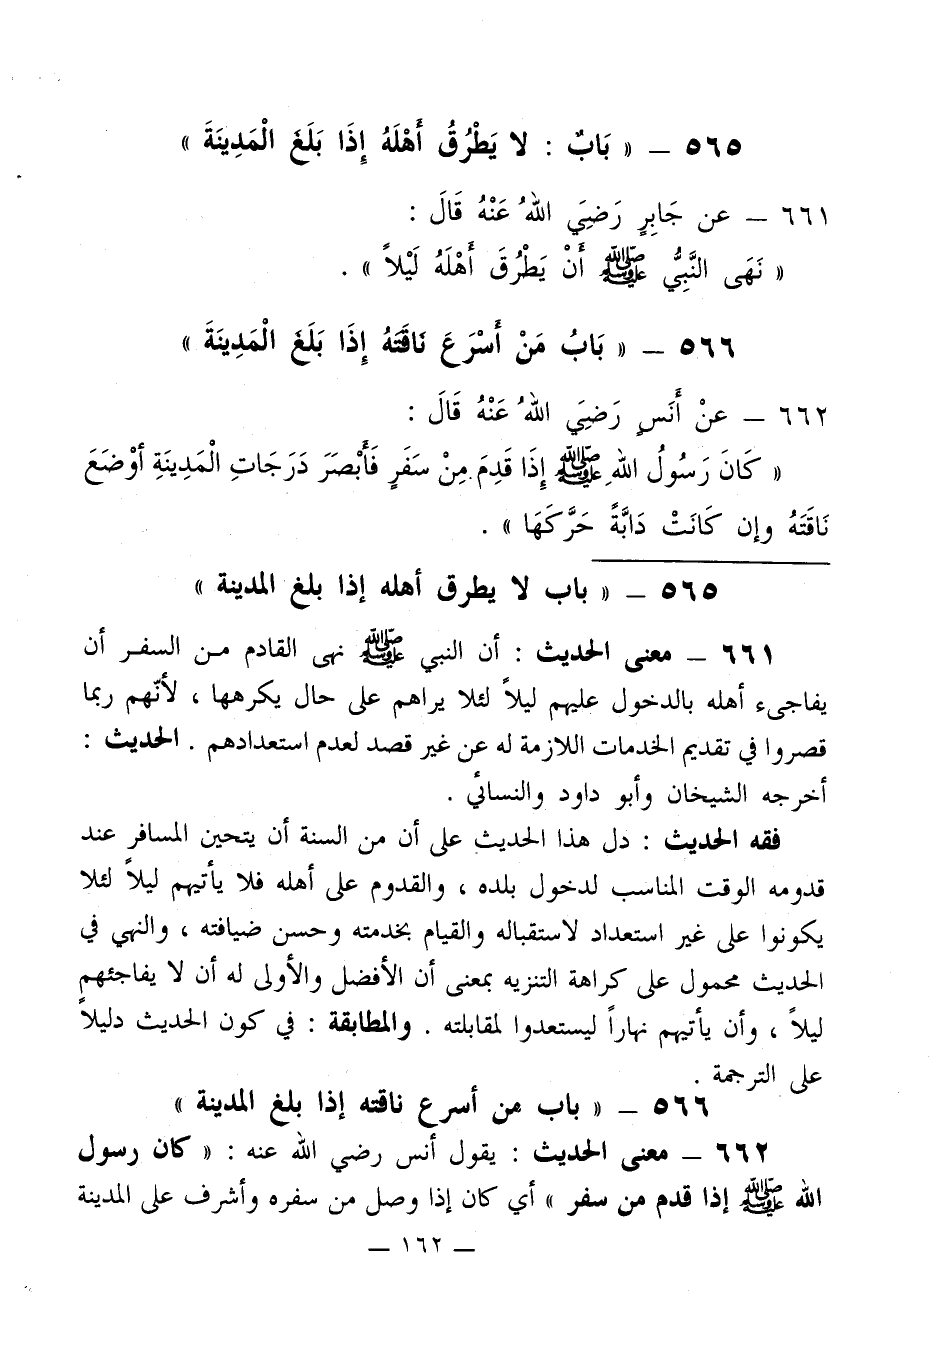 ٥٦٥ – « بَابٌ : لا يَطْرُقُ أَهْلَهُ إِذَا بَلَغَ الْمَدِينَةَ »
٦٦١ – عن جَابِرٍ رَضِيَ اللهُ عَنْهُ قَالَ :
« نَهَى النَّبِيُّ ﷺ أَنْ يَطْرُقَ أَهْلَهُ لَيْلاً » .
٥٦٦ – « بَابُ مَنْ أَسْرَعَ نَاقَتَهُ إِذَا بَلَغَ الْمَدِينَةَ »
٦٦٢ – عنْ أَنَسٍ رَضِيَ اللهُ عَنْهُ قَالَ :
« كَانَ رَسُولُ اللهِ ﷺ إِذَا قَدِمَ مِنْ سَفَرٍ فَأَبْصَرَ دَرَجَاتِ الْمَدِينَةِ أَوْضَعَ
نَاقَتَهُ وإن كَانَتْ دَابَّةً حَرَّكَهَا » .
٥٦٥ – « باب لا يطرق أهله إذا بلغ المدينة »
٦٦١ – معنى الحديث : أن النبي ﷺ نهى القادم من السفر أن
يفاجىء أهله بالدخول عليهم ليلاً لئلا يراهم على حال يكرهها ، لأنّهم ربما
قصروا في تقديم الخدمات اللازمة له عن غير قصد لعدم استعدادهم . الحديث :
أخرجه الشيخان وأبو داود والنسائي .
فقه الحديث : دل هذا الحديث على أن من السنة أن يتحين المسافر عند
قدومه الوقت المناسب لدخول بلده ، والقدوم على أهله فلا يأتيهم ليلاً لئلا
يكونوا على غير استعداد لاستقباله والقيام بخدمته وحسن ضيافته ، والنهي في
الحديث محمول على كراهة التنزيه بمعنى أن الأفضل والأولى له أن لا يفاجئهم
ليلاً ، وأن يأتيهم نهاراً ليستعدوا لمقابلته . والمطابقة : في كون الحديث دليلاً
على الترجمة .
٥٦٦ – « باب من أسرع ناقته إذا بلغ المدينة »
٦٦٢ – معنى الحديث : يقول أنس رضي الله عنه : « كان رسول
الله ﷺ إذا قدم من سفر » أي كان إذا وصل من سفره وأشرف على المدينة
– ١٦٢ –